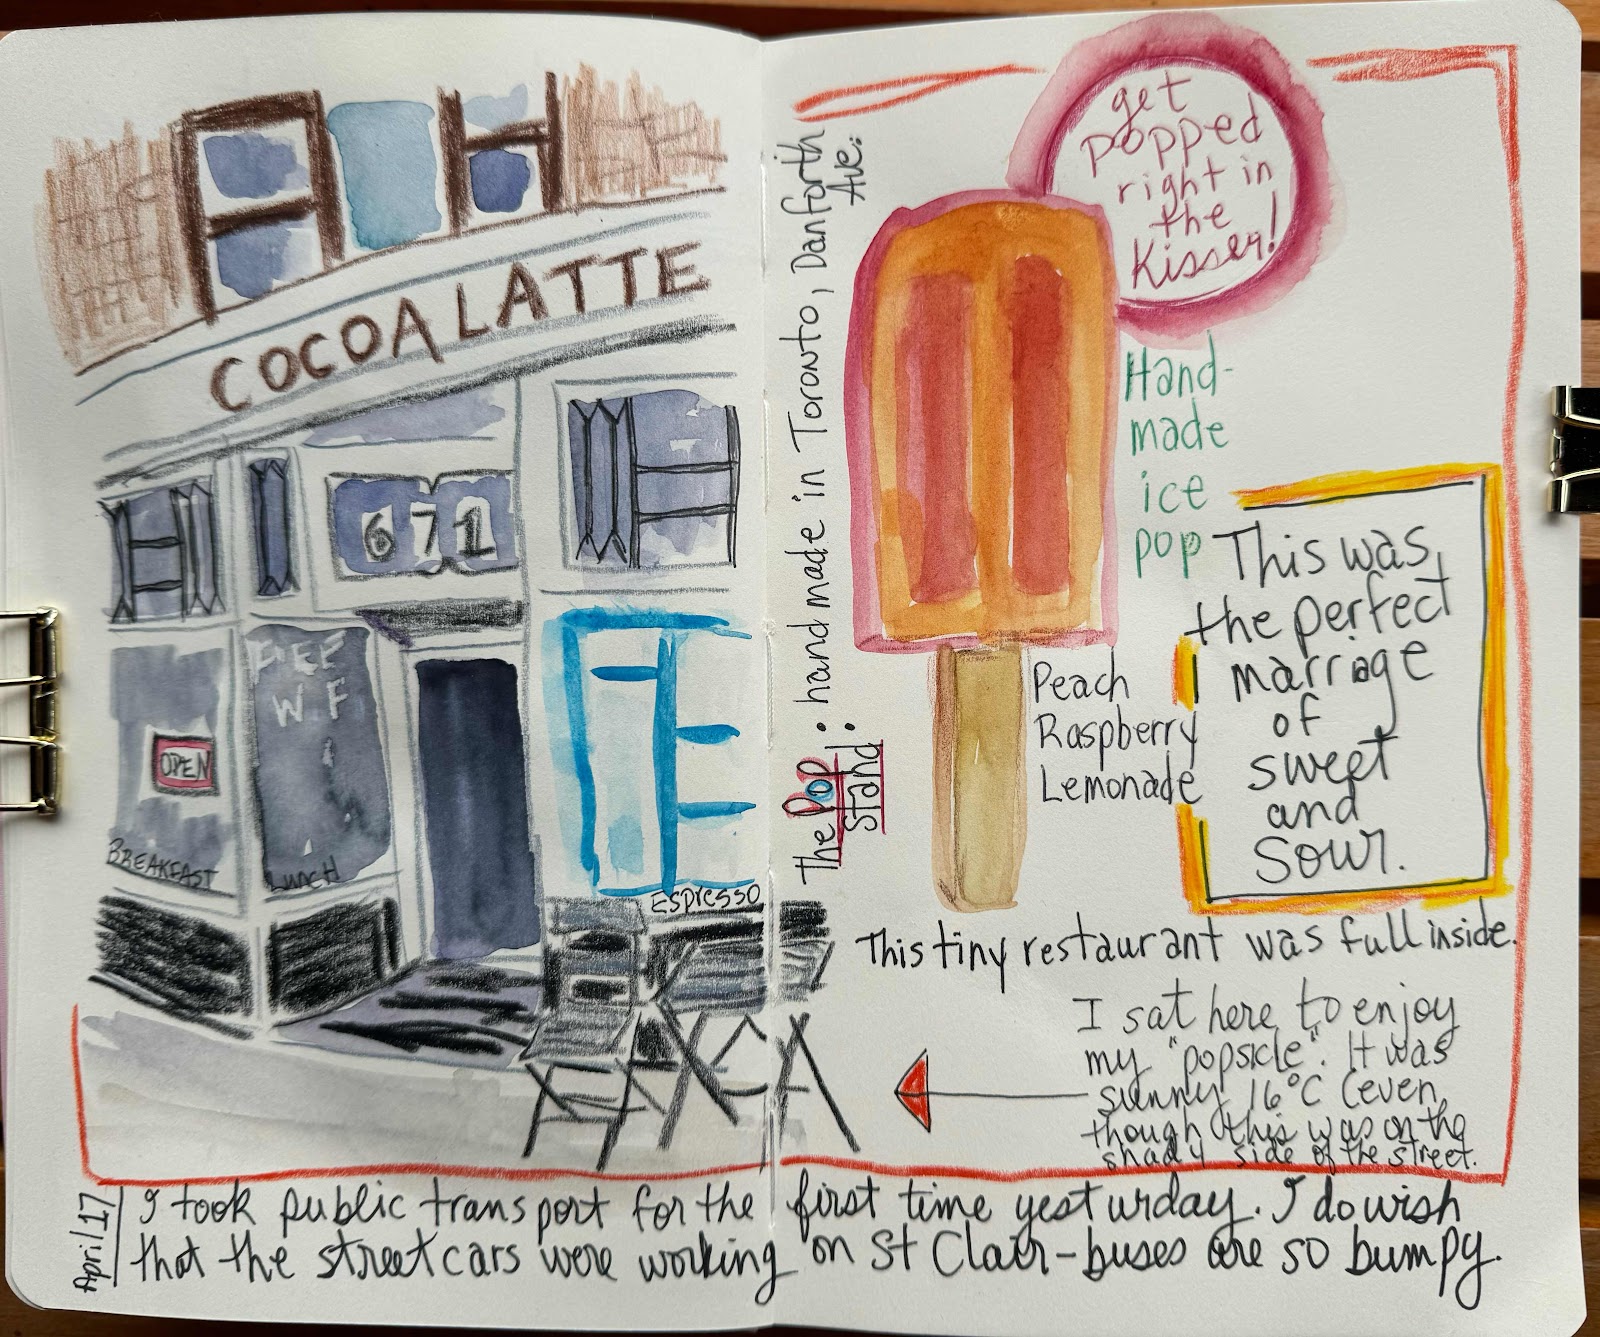 COCOA LATTE
671
FREE
W F
OPEN
BREAKFAST
LUNCH
ESPRESSO
The Pop Stand
• handmade in Toronto, Danforth
Ave. •
get
popped
right in
the
Kisser!
Hand-
made
ice
pop
Peach
Raspberry
Lemonade
This was
the perfect
marriage
of
sweet
and
Sour.
This tiny restaurant was full inside.
I sat here to enjoy
my "popsicle". It was
sunny 16°C (even
though this was on the
shady side of the street.
April 17
I took public transport for the first time yesturday. I do wish
that the streetcars were working on St Clair-buses are so bumpy.